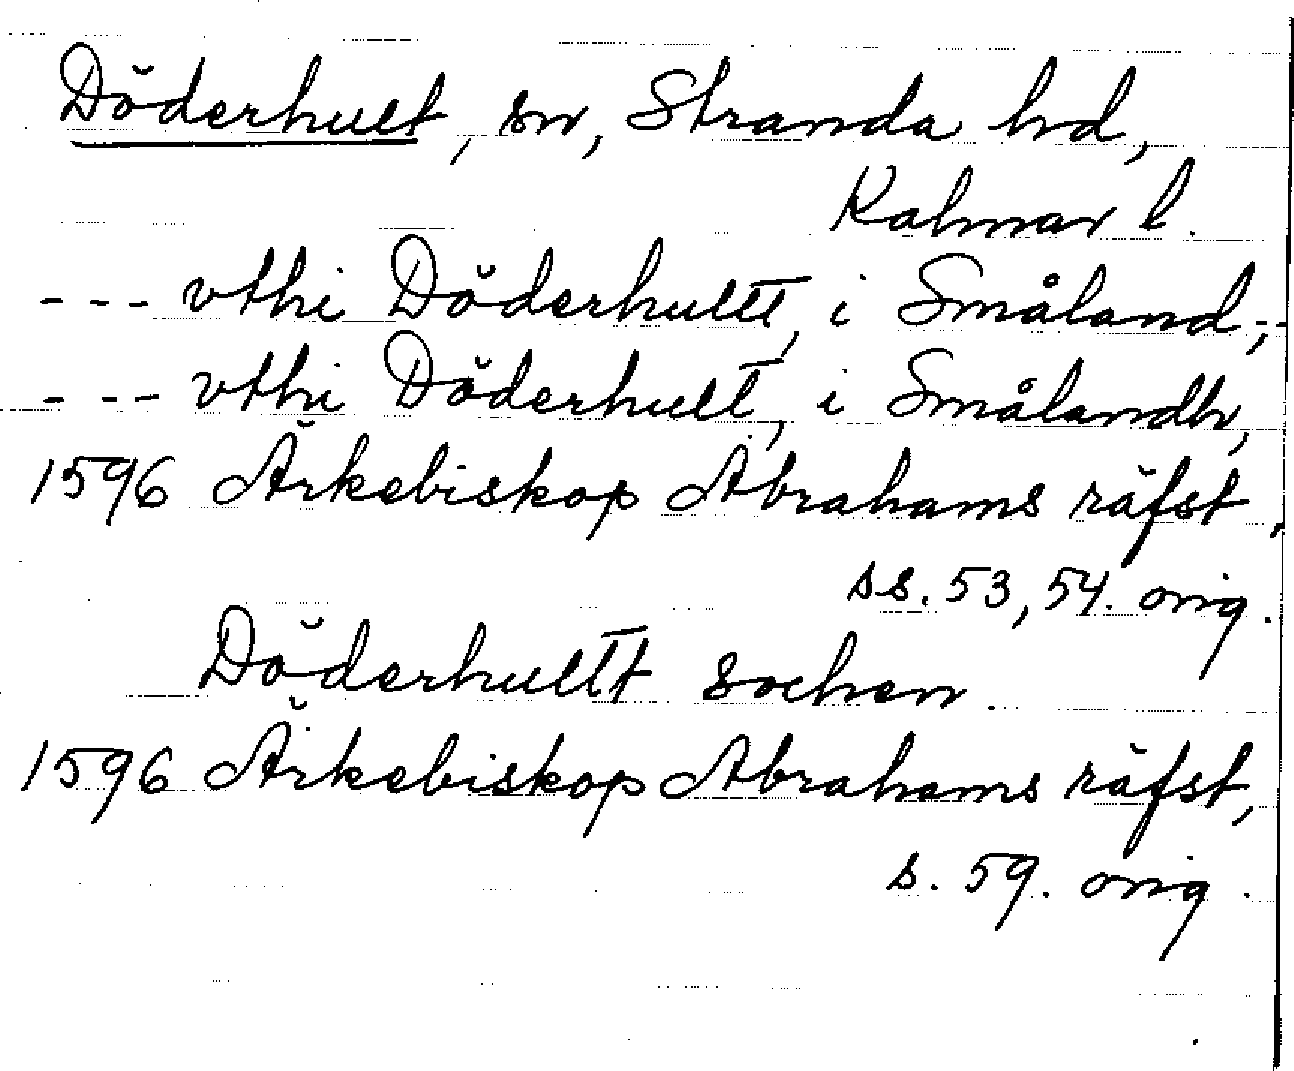 Döderhult, sn, Stranda hd,
Kalmar l.
--- vthi Döderhultt, i Småland,-
--- vthi Döderhult, i Smålandh,
1596 Ärkebiskop Abrahams räfst,
ss. 53, 54. orig.
Döderhultt sochen.
1596 Ärkebiskop Abrahams räfst,
s. 59. orig.